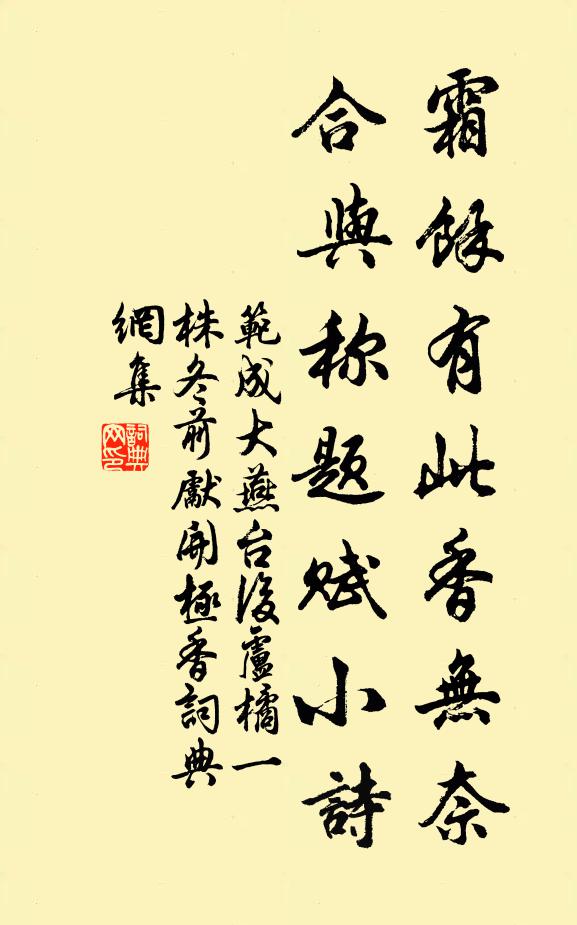 霜餘有此香無奈
合與称题赋小詩
範成大燕台後盧橘一
株冬前獻開極香詞典
網集
詞典
网印